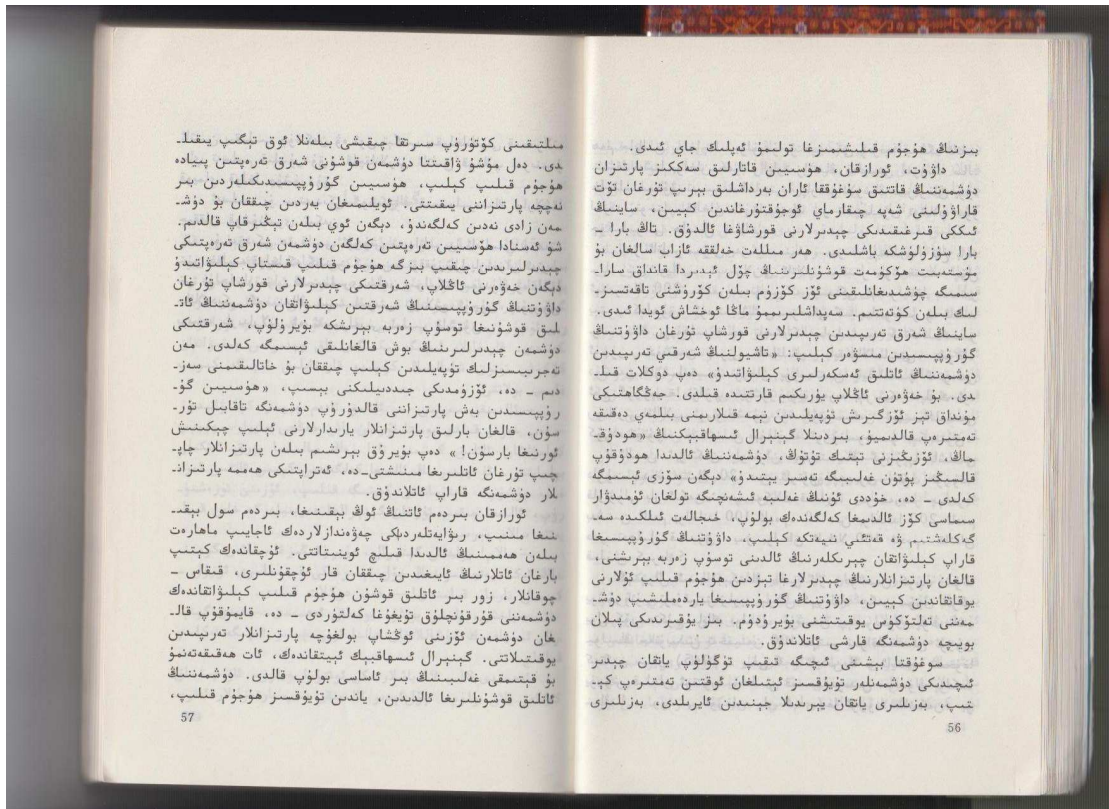 بىزنىڭ ھۇجۇم قىلىشىمىزغا تولىمۇ ئەپلىك جاي ئىدى.
داۋۇت، ئورازقان، ھۈسىيىن قاتارلىق سەككىز پارتىزان
دۈشمەننىڭ قاتتىق سوغۇققا ئاران بەرداشلىق بېرىپ تۇرغان تۆت
قاراۋۇلىنى شەپە چىقارماي ئوجۇقتۇرغاندىن كېيىن، ساينىڭ
ئىككى قىرغىقىدىكى چېدىرلارنى قورشاۋغا ئالدۇق. تاڭ بارا ـ
بارا سۈزۈلۈشكە باشلىدى. ھەر مىللەت خەلققە ئازاب سالغان بۇ
مۇستەبىت ھۆكۈمەت قوشۇنلىرىنىڭ چۆل ئېدىردا قانداق سارا۔
سىمگە چۈشىدىغانلىقىنى ئۆز كۆزۈم بىلەن كۆرۈشنى تاقەتسىز۔
لىك بىلەن كۈتەتتىم. سەپداشلىرىممۇ ماڭا ئوخشاش ئويدا ئىدى.
ساينىڭ شەرق تەرىپىدىن چېدىرلارنى قورشاپ تۇرغان داۋۇتنىڭ
گۇرۇپپىسىدىن مىسۋەر كېلىپ: «تاشيولنىڭ شەرقىي تەرىپىدىن
دۈشمەننىڭ ئاتلىق ئەسكەرلىرى كېلىۋاتىدۇ» دەپ دوكلات قىلـ
دى. بۇ خەۋەرنى ئاڭلاپ يۈرىكىم قارتتىدە قىلدى. جەڭگاھتىكى
مۇنداق تېز ئۆزگىرىش تۈپەيلىدىن نېمە قىلارىمنى بىلمەي دەقىقە
تەمتىرەپ قالدىميۇ، بىردىنلا گېنېرال ئىسھاقبېكنىڭ «ھودۇقـ
ماڭ، ئۆزىڭىزنى تېتىك تۇتۇڭ، دۈشمەننىڭ ئالدىدا ھودۇقۇپ
قالسىڭىز پۈتۈن غەلىبىگە تەسىر يېتىدۇ» دېگەن سۆزى ئېسىمگە
كەلدى ـ دە، خۇددى ئۇنىڭ غەلىبە ئىشەنچىگە تولغان ئۈمىدۋار
سىماسى كۆز ئالدىمغا كەلگەندەك بولۇپ، خىجالەت ئىلكىدە سەـ
گەكلەشتىم ۋە قەتئىي نىيەتكە كېلىپ، داۋۇتنىڭ گۇرۇپپىسىغا
قاراپ كېلىۋاتقان چېرىكلەرنىڭ ئالدىنى توسۇپ زەربە بېرىشنى،
قالغان پارتىزانلارنىڭ چېدىرلارغا تېزدىن ھۇجۇم قىلىپ ئۇلارنى
يوقاتقاندىن كېيىن، داۋۇتنىڭ گۇرۇپپىسىغا ياردەملىشىپ دۈشـ
مەننى تەلتۆكۈس يوقىتىشنى بۇيرۇدۇم. بىز يۇقىرىدىكى پىلان
بويىچە دۈشمەنگە قارشى ئاتلاندۇق.
سوغۇقتا بېشىنى ئىچىگە تىقىپ تۈگۈلۈپ ياتقان چېدىر
ئىچىدىكى دۈشمەنلەر تۇيۇقسىز ئېتىلغان ئوقتىن تەمتىرەپ كېـ
تىپ، بەزىلىرى ياتقان يېرىدىلا جېنىدىن ئايرىلدى، بەزىلىرى
56
مىلتىقىنى كۆتۈرۈپ سىرتقا چىقىشى بىلەنلا ئوق تېگىپ يىقىلـ
دى. دەل مۇشۇ ۋاقىتتا دۈشمەن قوشۇنى شەرق تەرەپتىن پىيادە
ھۇجۇم قىلىپ كېلىپ، ھۈسىيىن گۇرۇپپىسىدىكىلەردىن بىر
نەچچە پارتىزاننى يىقىتتى. ئويلىمىغان يەردىن چىققان بۇ دۈشـ
مەن زادى نەدىن كەلگەندۇ، دېگەن ئوي بىلەن تېڭىرقاپ قالدىم.
شۇ ئەسنادا ھۈسىيىن تەرەپتىن كەلگەن دۈشمەن شەرق تەرەپتىكى
چېدىرلىرىدىن چىقىپ بىزگە ھۇجۇم قىلىپ قىستاپ كېلىۋاتىدۇ
دېگەن خەۋەرنى ئاڭلاپ، شەرقتىكى چېدىرلارنى قورشاپ تۇرغان
داۋۇتنىڭ گۇرۇپپىسىنىڭ شەرقتىن كېلىۋاتقان دۈشمەننىڭ ئاتـ
لىق قوشۇنىغا توسۇپ زەربە بېرىشكە بۇيرۇلۇپ، شەرقتىكى
دۈشمەن چېدىرلىرىنىڭ بوش قالغانلىقى ئېسىمگە كەلدى. مەن
تەجرىبىسىزلىك تۈپەيلىدىن كېلىپ چىققان بۇ خاتالىقىمنى سەزـ
دىم ـ دە، ئۆزۈمدىكى جىددىيلىكنى بېسىپ، «ھۈسىيىن گۇـ
رۇپپىسىدىن بەش پارتىزاننى قالدۇرۇپ دۈشمەنگە تاقابىل تۇرـ
سۇن، قالغان بارلىق پارتىزانلار يارىدارلارنى ئېلىپ چېكىنىش
ئورنىغا بارسۇن!» دەپ بۇيرۇق بېرىشىم بىلەن پارتىزانلار چاپـ
چىپ تۇرغان ئاتلىرىغا مىنىشتى-دە، ئەتراپتىكى ھەممە پارتىزانـ
لار دۈشمەنگە قاراپ ئاتلاندۇق.
ئورازقان بىردەم ئاتنىڭ ئوڭ بېقىنىغا، بىردەم سول بېقىـ
نىغا مىنىپ، رىۋايەتلەردىكى چەۋەندازلاردەك ئاجايىپ ماھارەت
بىلەن ھەممىنىڭ ئالدىدا قىلىچ ئوينىتاتتى. ئۇچقاندەك كېتىپ
بارغان ئاتلارنىڭ ئايىغىدىن چىققان قار ئۇچقۇنلىرى، قىقاس ـ
چوقانلار، زور بىر ئاتلىق قوشۇن ھۇجۇم قىلىپ كېلىۋاتقاندەك
دۈشمەننى قورقۇنچلۇق تۇيغۇغا كەلتۈردى ـ دە، قايمۇقۇپ قالـ
غان دۈشمەن ئۆزىنى ئوڭشاپ بولغۇچە پارتىزانلار تەرىپىدىن
يوقىتىلاتتى. گېنېرال ئىسھاقبېك ئېيتقاندەك، ئات ھەقىقەتەنمۇ
بۇ قېتىمقى غەلىبىنىڭ بىر ئاساسى بولۇپ قالدى. دۈشمەننىڭ
ئاتلىق قوشۇنلىرىغا ئالدىدىن، ياندىن تۇيۇقسىز ھۇجۇم قىلىپ،
57